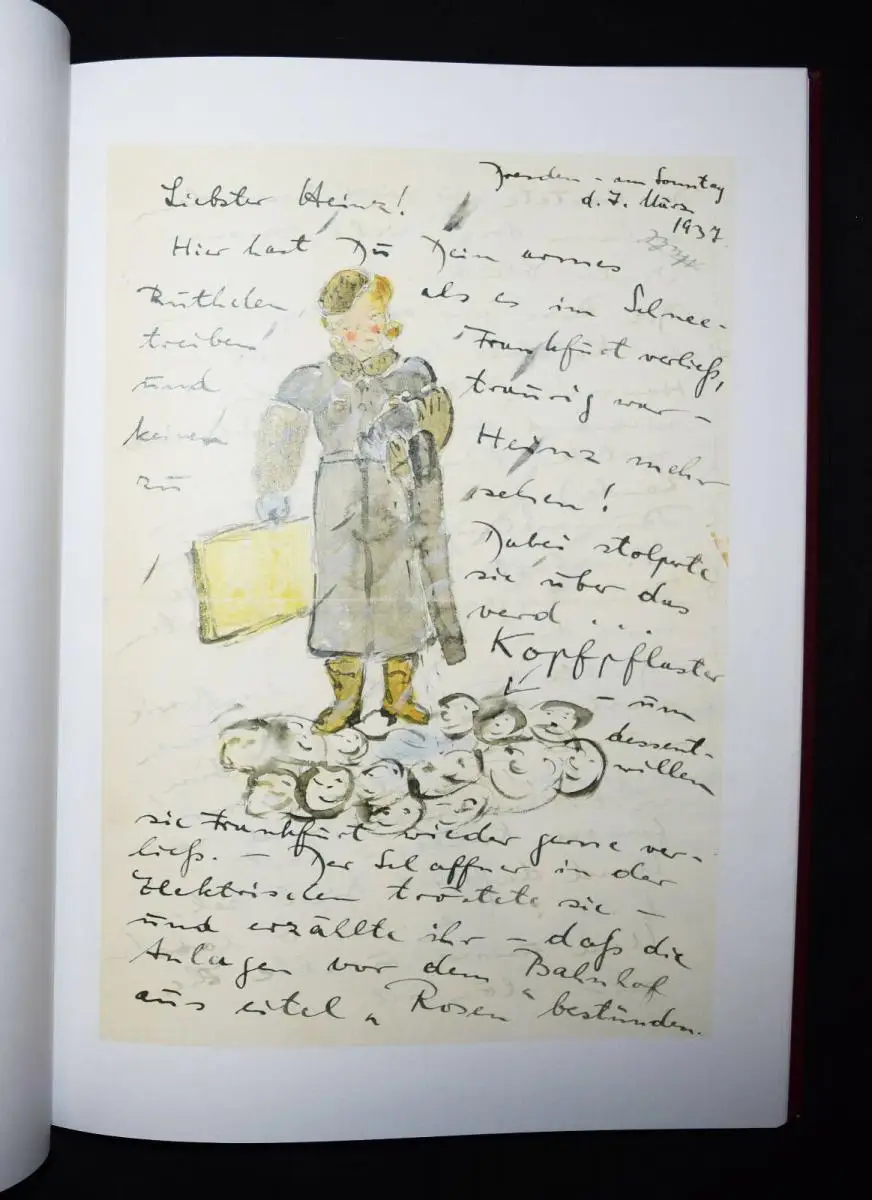 Dresden – am Sonntag
d. 7. März
1937.
Liebster Heinz!
Hier hast Du Dein armes
Ruthchen als es im Schnee-
treiben Frankfurt verließ,
und traurig war –
keinen Heinz mehr
zu sehen!
Dabei stolperte
sie über das
verd ...
Kopfpflaster
– um
dessent-
willen
sie Frankfurt wieder gerne ver-
ließ. – Der Schaffner in der
Elektrischen tröstete sie –
und erzählte ihr – daß die
Anlagen vor dem Bahnhof
aus eitel „Rosen“ bestünden.